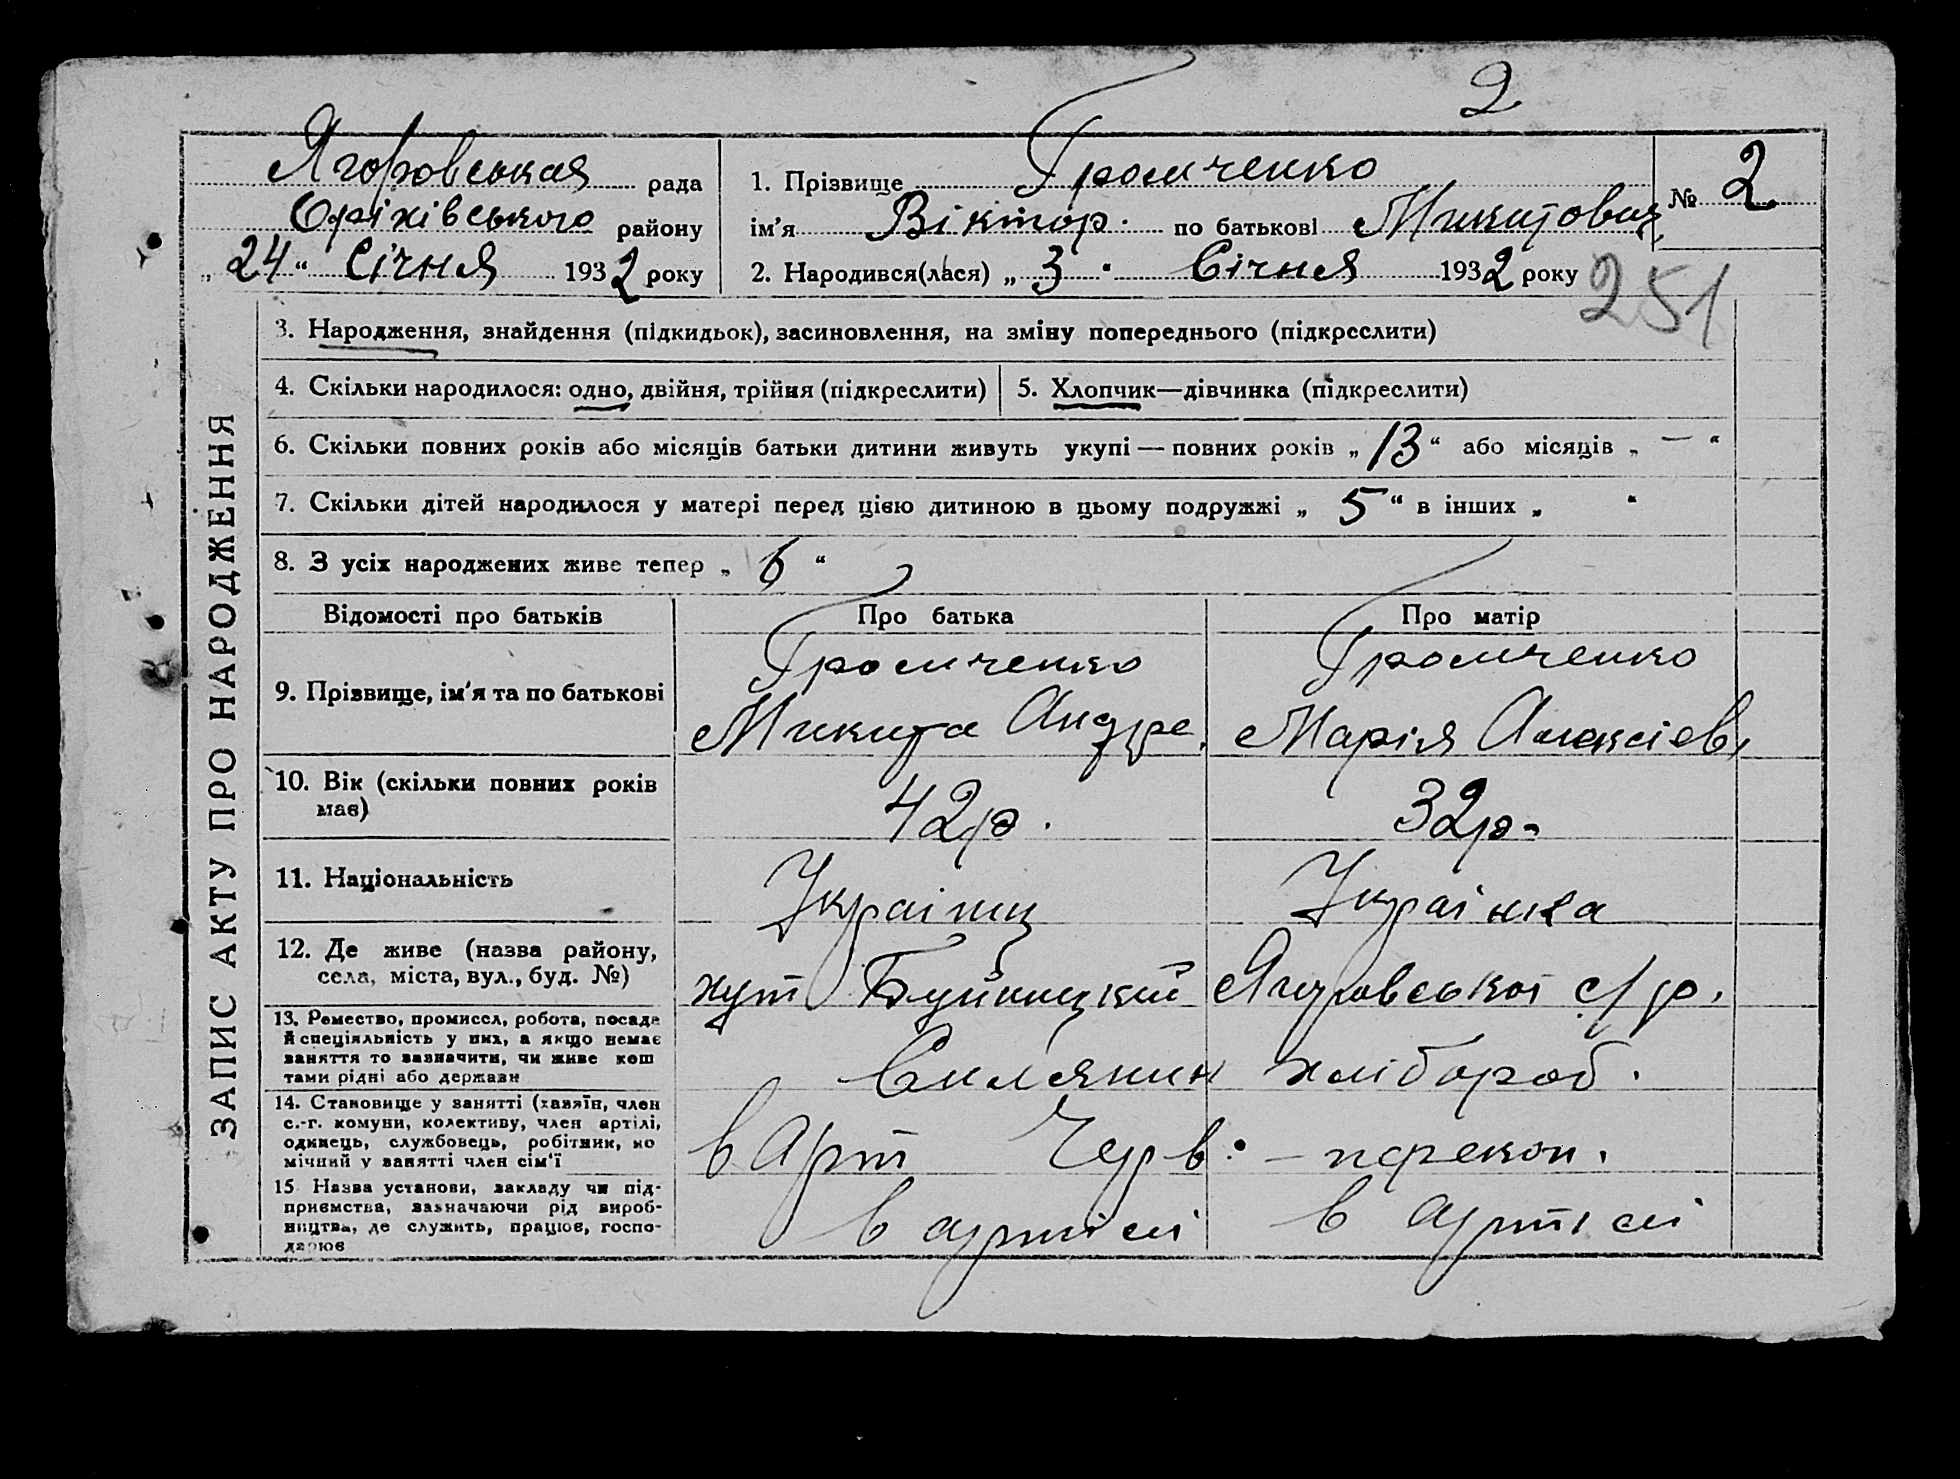 2
Ягоровськая рада
Оріхівського району
„ 24 “ Січня 1932 року
1. Прізвище Громченко
ім'я Віктор. по батькові Микитович
2. Народився(лася) „ 3 “ Січня 1932 року
№ 2
251
ЗАПИС АКТУ ПРО НАРОДЖЕННЯ
3. Народження, знайдення (підкидьок), засиновлення, на зміну попереднього (підкреслити)
4. Скільки народилося: одно, двійня, трійня (підкреслити)
5. Хлопчик—дівчинка (підкреслити)
6. Скільки повних років або місяців батьки дитини живуть укупі — повних років „ 13 “ або місяців „ — “
7. Скільки дітей народилося у матері перед цією дитиною в цьому подружжі „ 5 “ в інших „ “
8. З усіх народжених живе тепер „ 6 “
Відомості про батьків Про батька Про матір
9. Прізвище, ім'я та по батькові
Громченко
Микита Андре.
Громченко
Марія Алексієв,
10. Вік (скільки повних років
має)
42р. 32р.
11. Національність
Українц Українка
12. Де живе (назва району,
села, міста, вул., буд. №)
хут Ягоровської с/р.
13. Ремество, промисел, робота, посада
й спеціяльність у них, а якщо немає
заняття то вазначити, чи живе кош
тами рідні або держави
Силянин хлібороб.
14. Становище у занятті (хазяїн, член
с.-г. комуни, колективу, член артілі,
одинець, службовець, робітник, по
мічний у занятті член сім'ї
в Арт Черв. – перекоп.
15 Назва установи, закладу чи під-
приємства, вазначаючи рід вироб-
ництва, де служить, працює, госпо-
дарює
в артілі в артілі